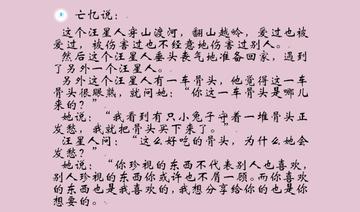 亡忆说：
这个汪星人穿山渡河，翻山越岭，爱过也被
爱过，被伤害过也不经意地伤害过别人。
然后这个汪星人垂头丧气地准备回家，遇到
了另外一个汪星人。
另外这个汪星人有一车骨头，他觉得这一车
骨头很眼熟，就问她：“你这一车骨头是哪儿
来的？”
她说：“我看到有只小兔子守着一堆骨头正
发愁，我就把骨头买下来了。”
汪星人问：“这么好吃的骨头，为什么她会
发愁？”
她说：“你珍视的东西不代表别人也喜欢，
别人珍视的东西你或许也不屑一顾。而你喜欢
的东西也是我喜欢的，我想分享给你的也是你
想要的。